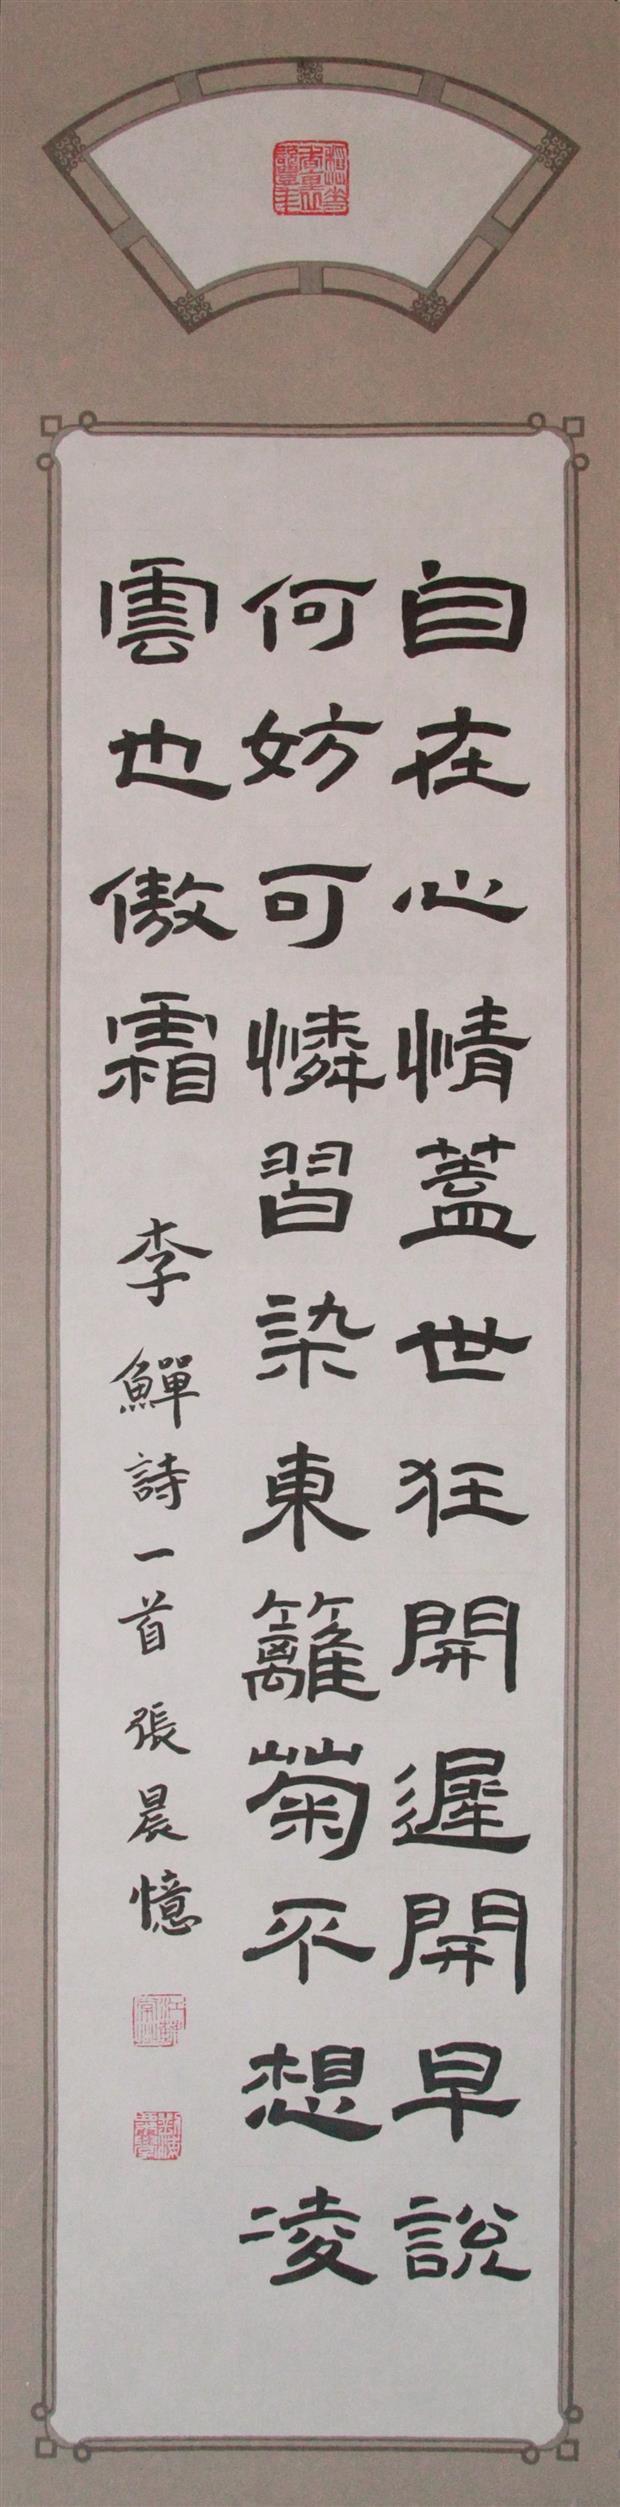 自在心情蓋世狂開遲開早說
何妨可憐習染東籬菊不想凌
雲也傲霜
李鱓詩一首張晨憶